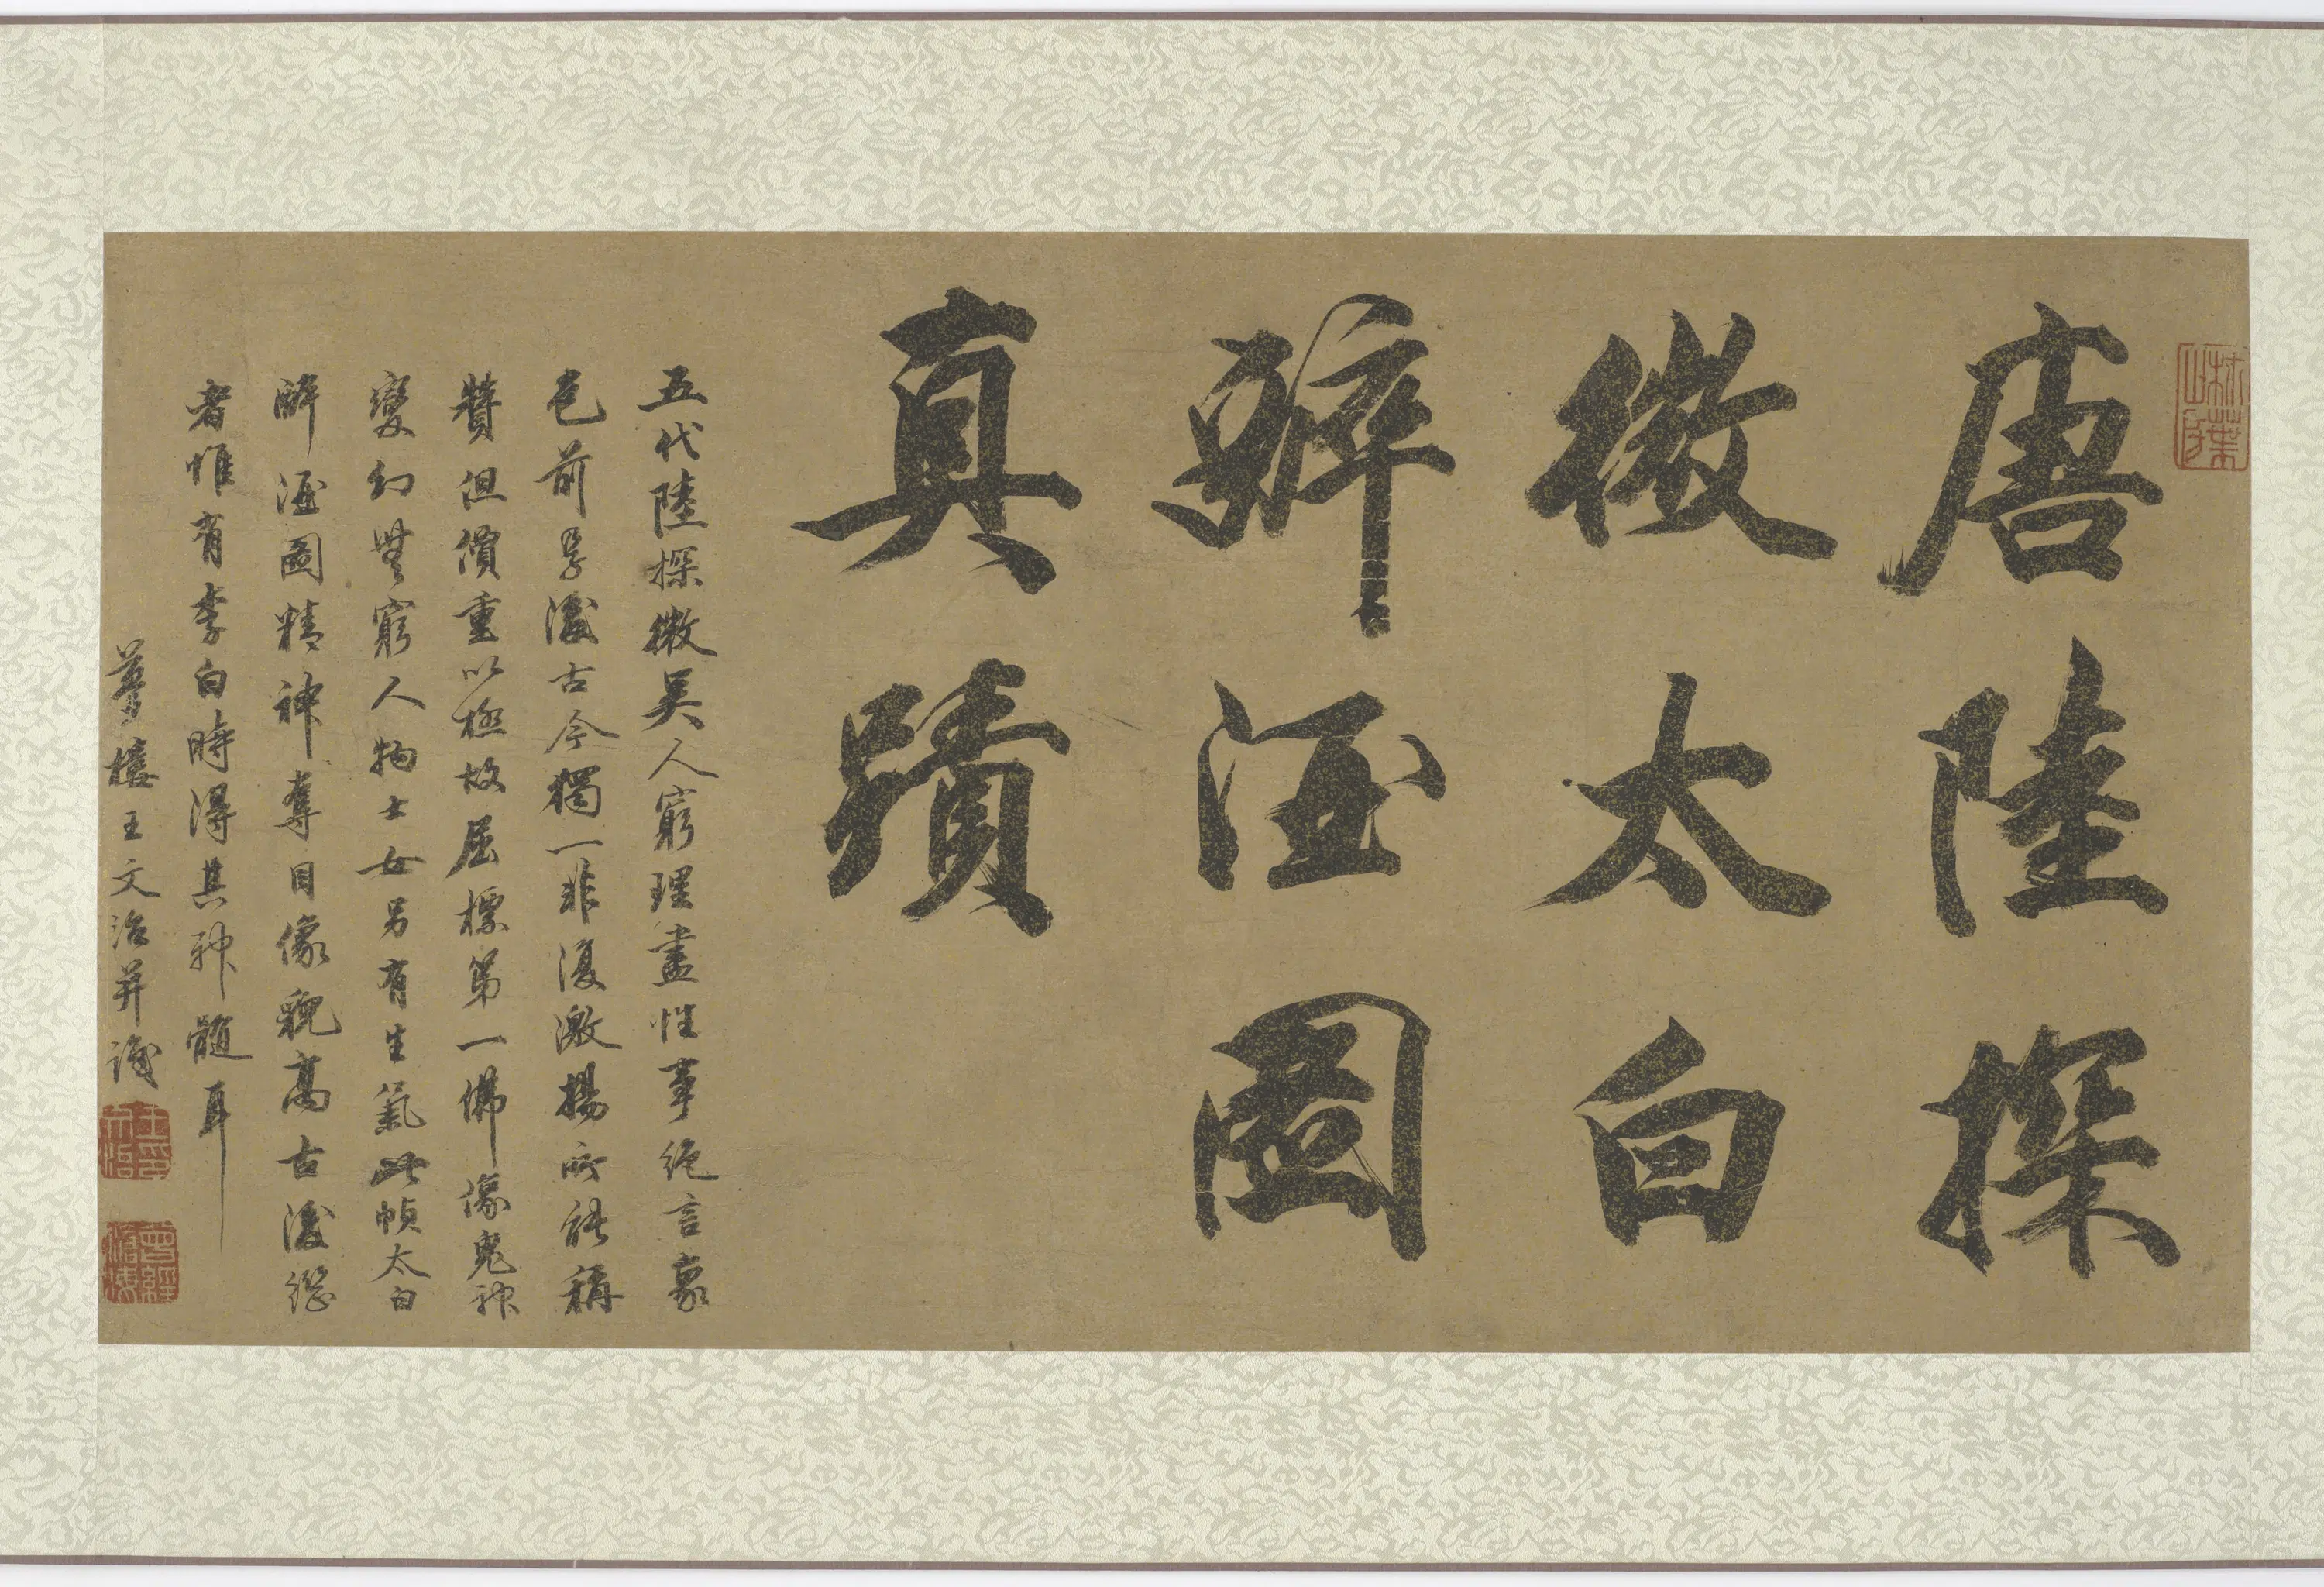 唐陸探
微太白
醉酒圖
真蹟
五代陸探微吳人窮理盡性事絕言象
包前孕後古今獨一非復激揚所能稱
贊但價重以極故屈標第一佛像鬼神
變幻無窮人物士女另有生氣此幀太白
醉酒圖精神奪目像貌高古後繼
者惟有李白時得其神髓耳
夢樓王文治并識
王文治印
曾經滄海